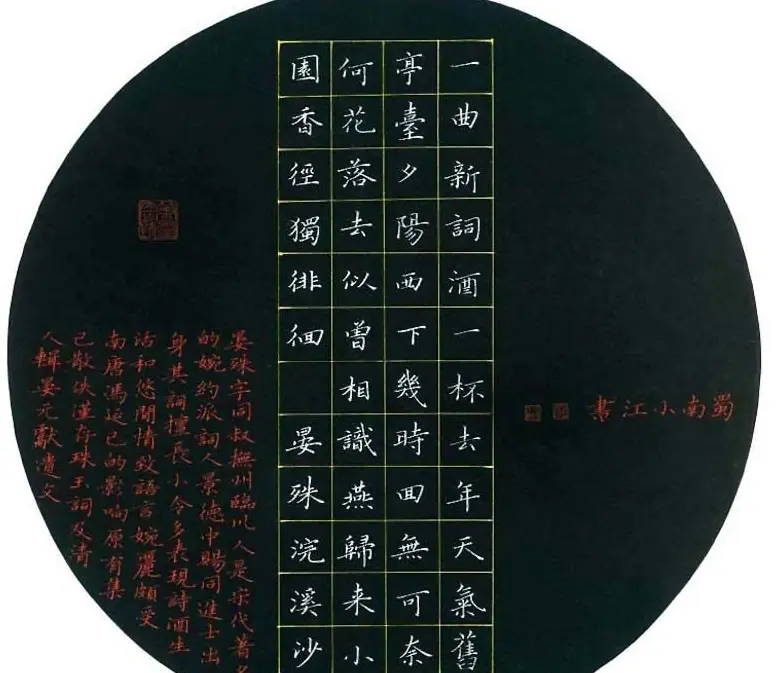 蜀南小江書
一曲新詞酒一杯去年天氣舊
亭臺夕陽西下幾時回無可奈
何花落去似曾相識燕歸来小
園香徑獨徘徊
晏殊浣溪沙
晏殊字同叔撫州臨川人是宋代著名
的婉約派詞人景德中賜同進士出
身其詞擅長小令多表現詩酒生
活和悠閒情致語言婉麗頗受
南唐馮延已的影响原有集
已散佚僅存珠玉詞及清
人輯晏元獻遺文